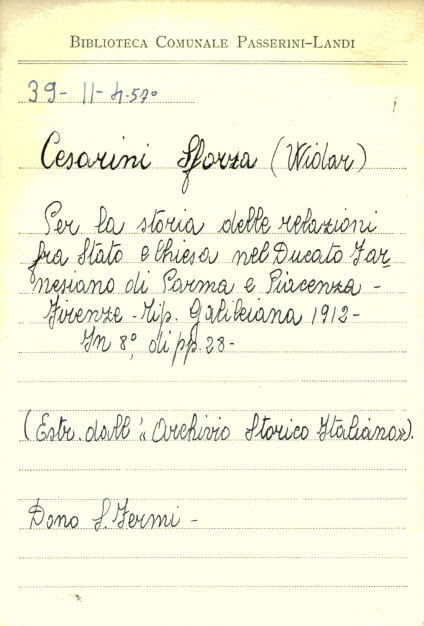 BIBLIOTECA COMUNALE PASSERINI-LANDI
39- 11-4-57°
Cesarini Sforza (Widar)
Per la storia delle relazioni
fra Stato e Chiesa nel Ducato Far-
nesiano di Parma e Piacenza -
Firenze - Tip. Galileiana 1912-
In 8°, di pp. 28-
(Estr. dall'«Archivio Storico Italiano»).
Dono S. Fermi -